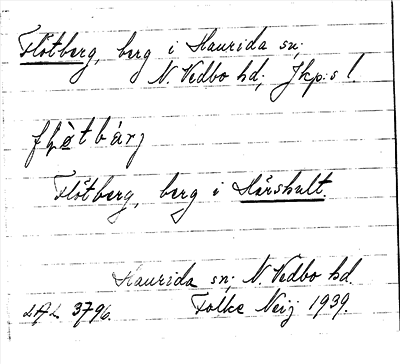 Flötberg, berg i Haurida sn;
N. Vedbo hd; Jkp:s l.
Flötberg, berg i Härshult.
Haurida sn; N. Vedbo hd.
LAL 3796. Folke Neij 1939.